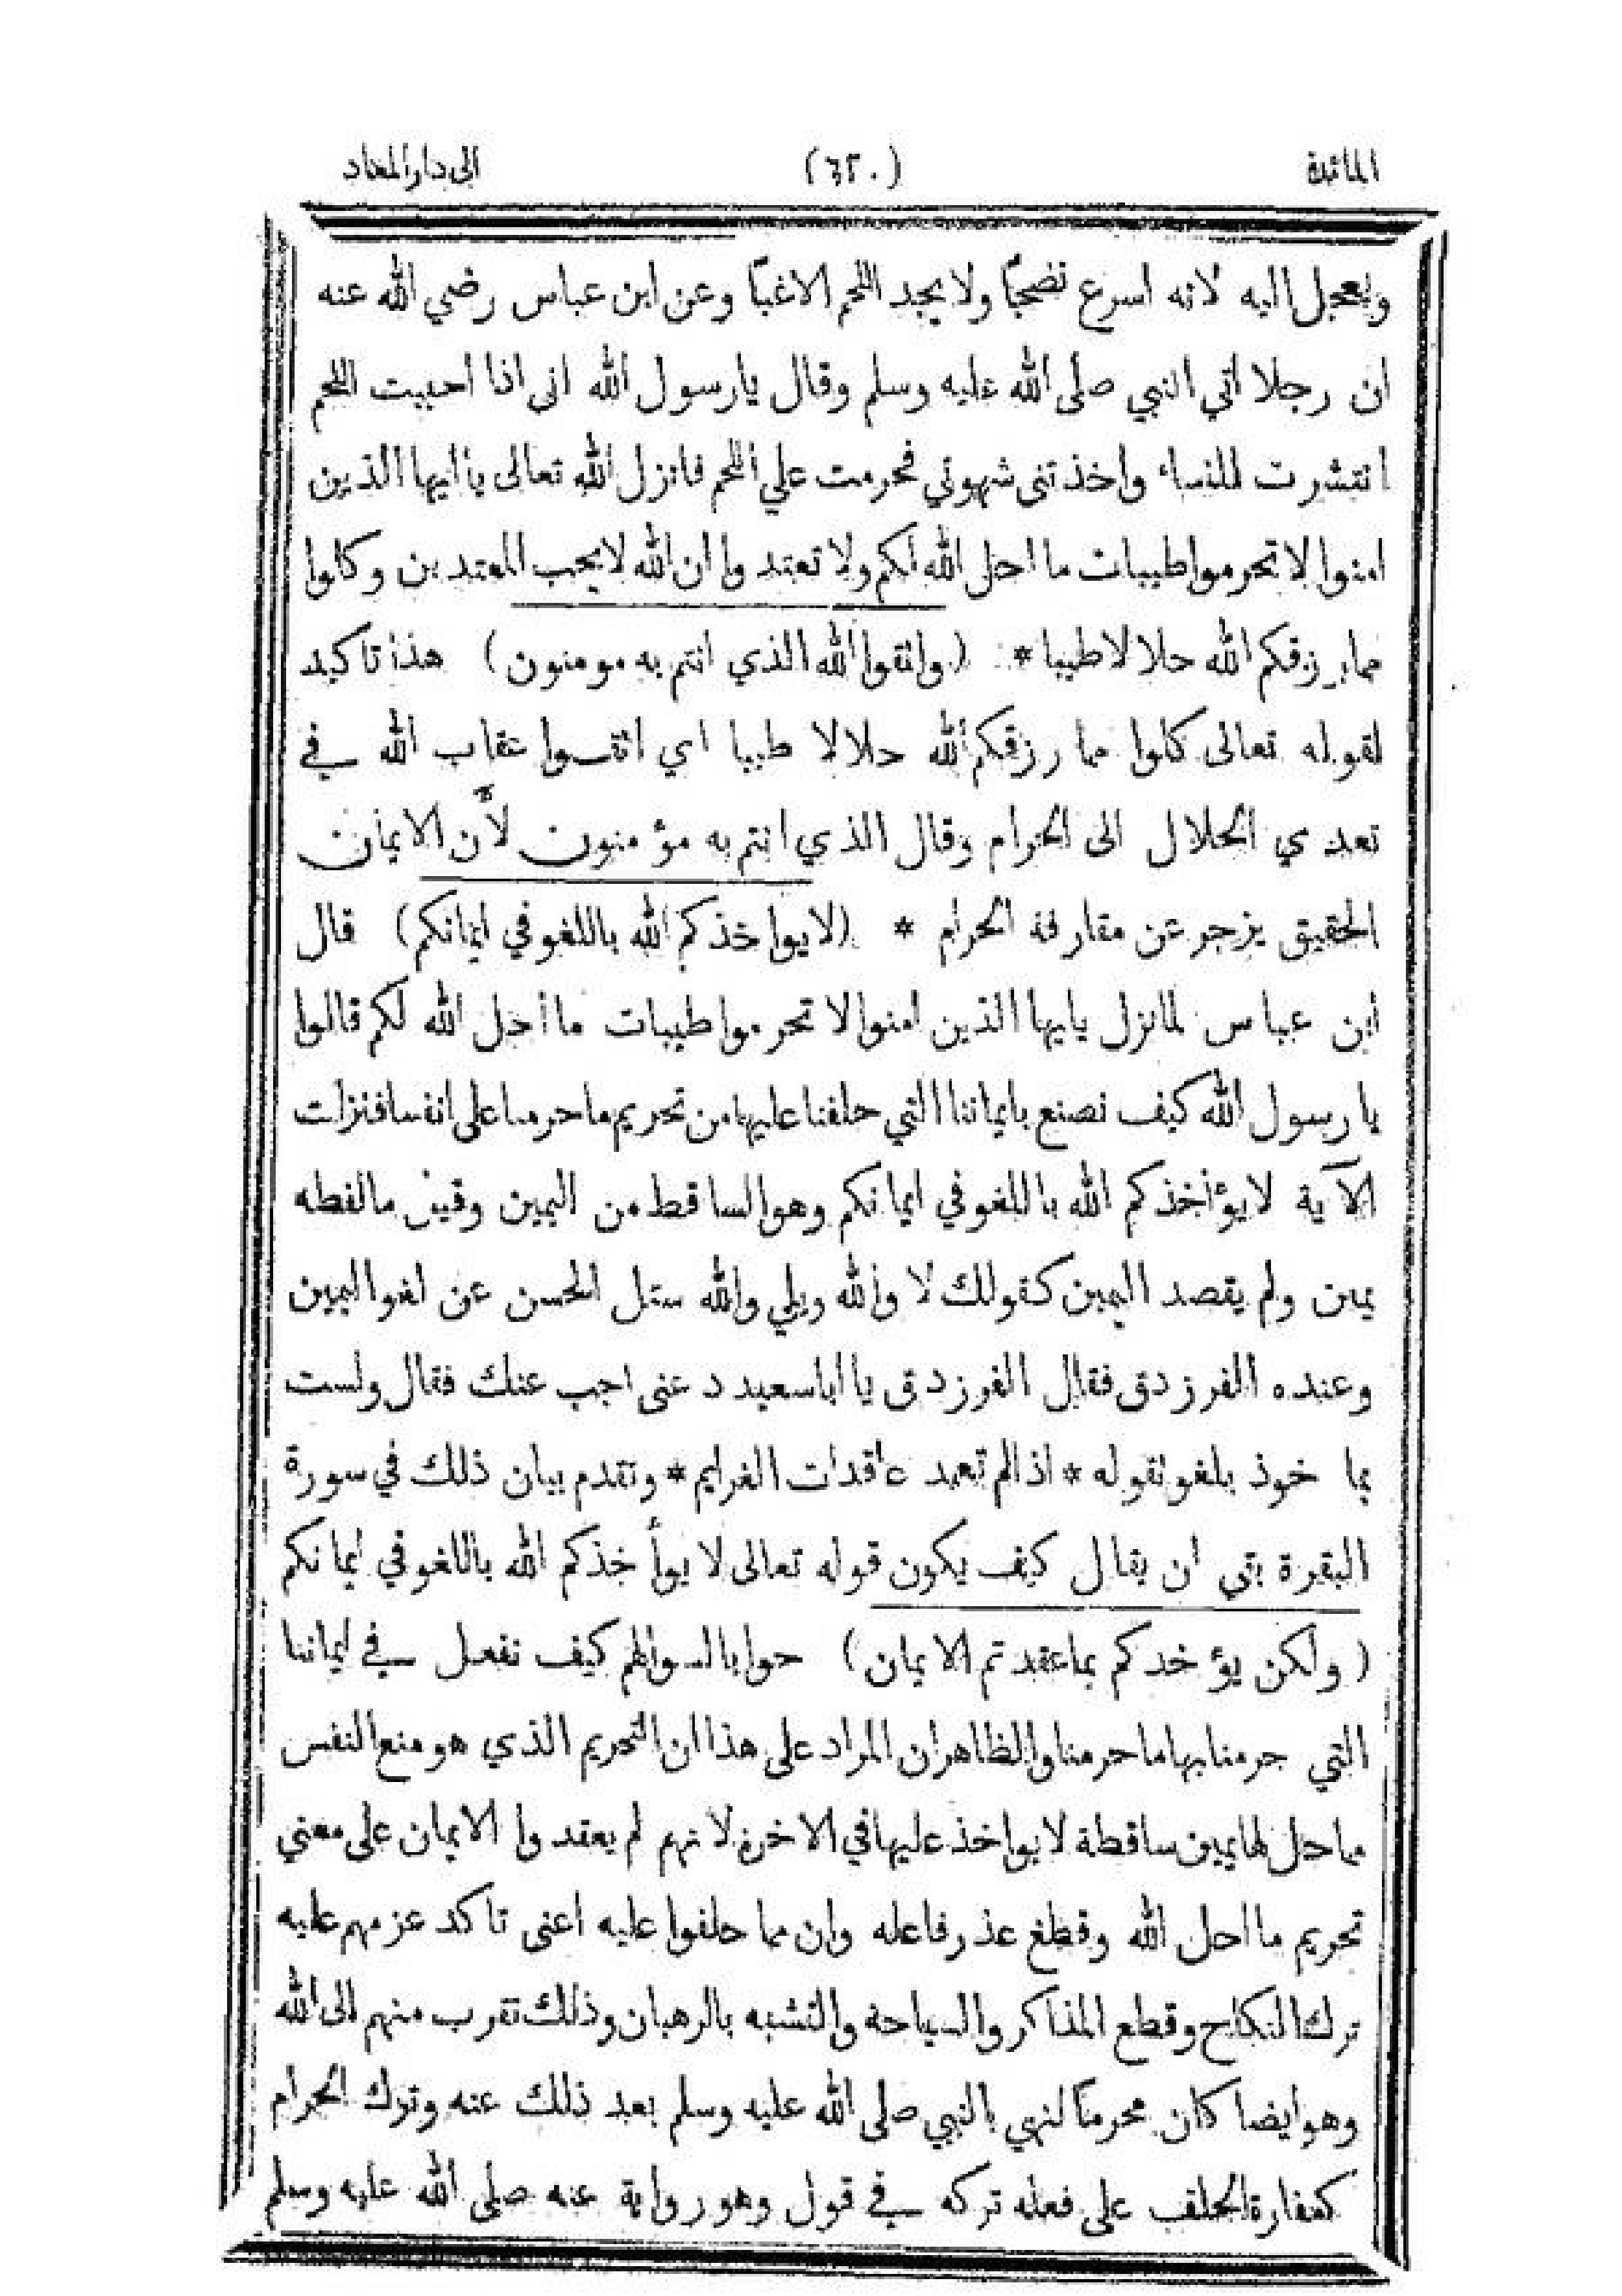 المائدة (٦٢٠) الى دار المعاد
ويعجل اليه لانه اسرع نضجًا ولا يجد اللحم الا غبًا وعن ابن عباس رضي الله عنه
ان رجلا اتي النبي صلى الله عليه وسلم وقال يارسول الله انى اذا احببت اللحم
انتشرت للنساء واخذتنى شهوتي فحرمت علي اللحم فانزل الله تعالى ياايها الذين
امنوا لا تحرموا طيبات ما احل الله لكم ولا تعتدوا ان الله لا يحب المعتدين وكلوا
مما رزقكم الله حلالا طيبا * (واتقوا الله الذي انتم به مومنون) هذا تاكيد
لقوله تعالى كلوا مما رزقكم الله حلالا طيبا اي اتقسوا عقاب الله في
تعدي الحلال الى الحرام وقال الذي انتم به مؤمنون لأن الايمان
الحقيق يزجر عن مقارفة الحرام * (لا يواخذكم الله باللغو في ايمانكم) قال
ابن عباس لمانزل يايها الذين امنوا لا تحرموا طيبات ما احل الله لكم قالوا
يارسول الله كيف نصنع بايماننا التي حلفنا عليها من تحريم ما حرمنا على انفسنا فنزلت
الآية لا يؤاخذكم الله باللغو في ايمانكم وهو الساقط من اليمين وقيل مالفظه
يمين ولم يقصد اليمين كقولك لا والله وبلي والله سئل الحسن عن لغو اليمين
وعنده الفرزدق فقال الفرزدق يا ابا سعيد دعنى اجب عنك فقال ولست
بما خوذ بلغو تقوله * اذا لم تعمد عاقدات الغرايم * وتقدم بيان ذلك في سورة
البقرة بقي ان يقال كيف يكون قوله تعالى لا يوأخذكم الله باللغو في ايمانكم
(ولكن يؤخدكم بماعقدتم الايمان) حوابا لسوالهم كيف نفعل في ايماننا
التي حرمنا بها ما حرمنا والظاهر ان المراد على هذا ان التحريم الذي هو منع النفس
مما حل لها يمين ساقطة لا يواخذ عليها في الاخرة لانهم لم يعقدوا الايمان على معني
تحريم ما احل الله وقطع عذر فاعله وان مما حلفوا عليه اعنى تاكد عزمهم عليه
ترك النكاح وقطع المذاكر والسياحة والتشبه بالرهبان وذلك تقرب منهم الى الله
وهو ايضا كان محرمًا لنهي بالنبي صلى الله عليه وسلم بعد ذلك عنه وترك الحرام
كفارة الحلف على فعله تركه في قول وهو رواية عنه صلى الله عليه وسلم